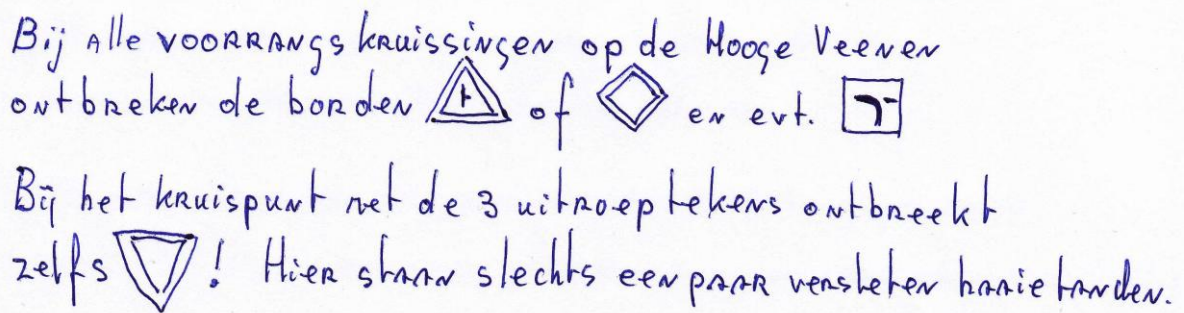 Bij alle voorrangskruissingen op de Hooge Veenen
ontbreken de borden of en evt.
Bij het kruispunt met de 3 uitroeptekens ontbreekt
zelfs ! Hier staan slechts een paar versleten haaietanden.